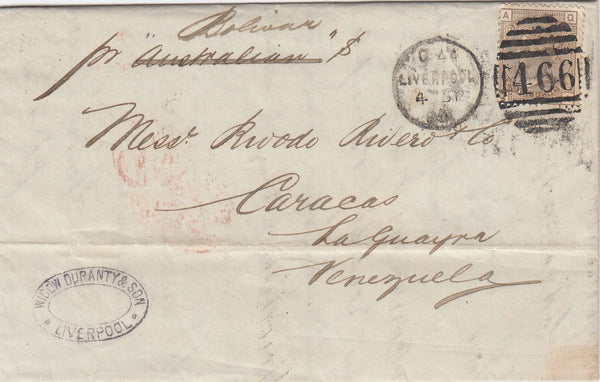 Bolivar
pr "Australian" S
LIVERPOOL
4 SP
A Q
466
Messr Rivodo Rivero & Co
Caracas
La Guayra
Venezuela
WIDOW DURANTY & SON
LIVERPOOL